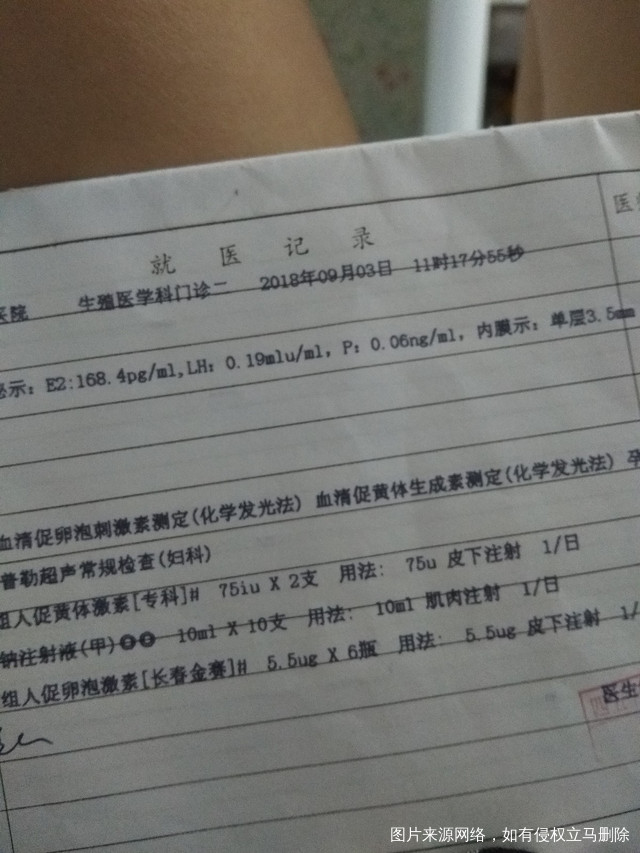 就 医 记 录
医院 生殖医学科门诊二 2018年09月03日 11时17分55秒
示: E2:168.4pg/ml,LH: 0.19mlu/ml, P: 0.06ng/ml, 内膜示: 单层3.5mm
血清促卵泡刺激素测定(化学发光法) 血清促黄体生成素测定(化学发光法)
普勒超声常规检查(妇科)
组人促黄体激素[专科]H 75iu X 2支 用法: 75u 皮下注射 1/日
钠注射液(甲) 10ml X 10支 用法: 10ml 肌肉注射 1/日
组人促卵泡激素[长春金赛]H 5.5ug X 6瓶 用法: 5.5ug 皮下注射 1/
医生
图片来源网络，如有侵权立马删除